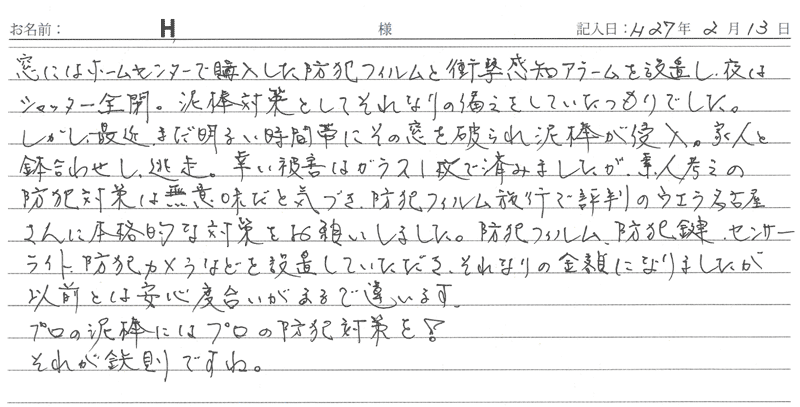 お名前： H 様 記入日：H27年 2月 13日
窓にはホームセンターで購入した防犯フィルムと衝撃感知アラームを設置し、夜は
シャッター全閉。泥棒対策としてそれなりの備えをしていたつもりでした。
しかし、最近まだ明るい時間帯にその窓を破られ泥棒が侵入。家人と
鉢合わせし、逃走。幸い被害はガラス1枚で済みましたが、素人考えの
防犯対策は無意味だと気づき、防犯フィルム施行で評判のウエラ名古屋
さんに本格的な対策をお願いしました。防犯フィルム、防犯鍵、センサー
ライト、防犯カメラなどを設置していただき、それなりの金額になりましたが
以前とは安心度合いがまるで違います。
プロの泥棒にはプロの防犯対策を！
それが鉄則ですね。